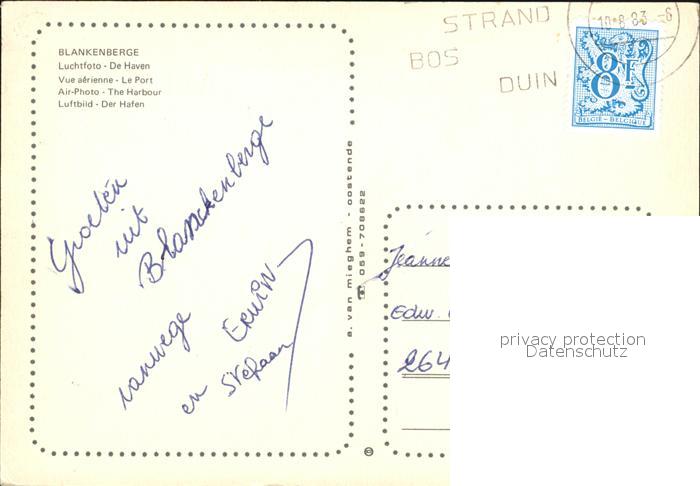 BLANKENBERGE
Luchtfoto - De Haven
Vue aérienne - Le Port
Air-Photo - The Harbour
Luftbild - Der Hafen
Groeten
uit
Blanckenberge
vanwege
Erwin
en Stefaan
a. van mieghem - oostende
☎ 059-708622
STRAND
BOS
DUIN
10-8 83 -6
8F
BELGIË-BELGIQUE
Jeanne
Edw.
264
privacy protection
Datenschutz